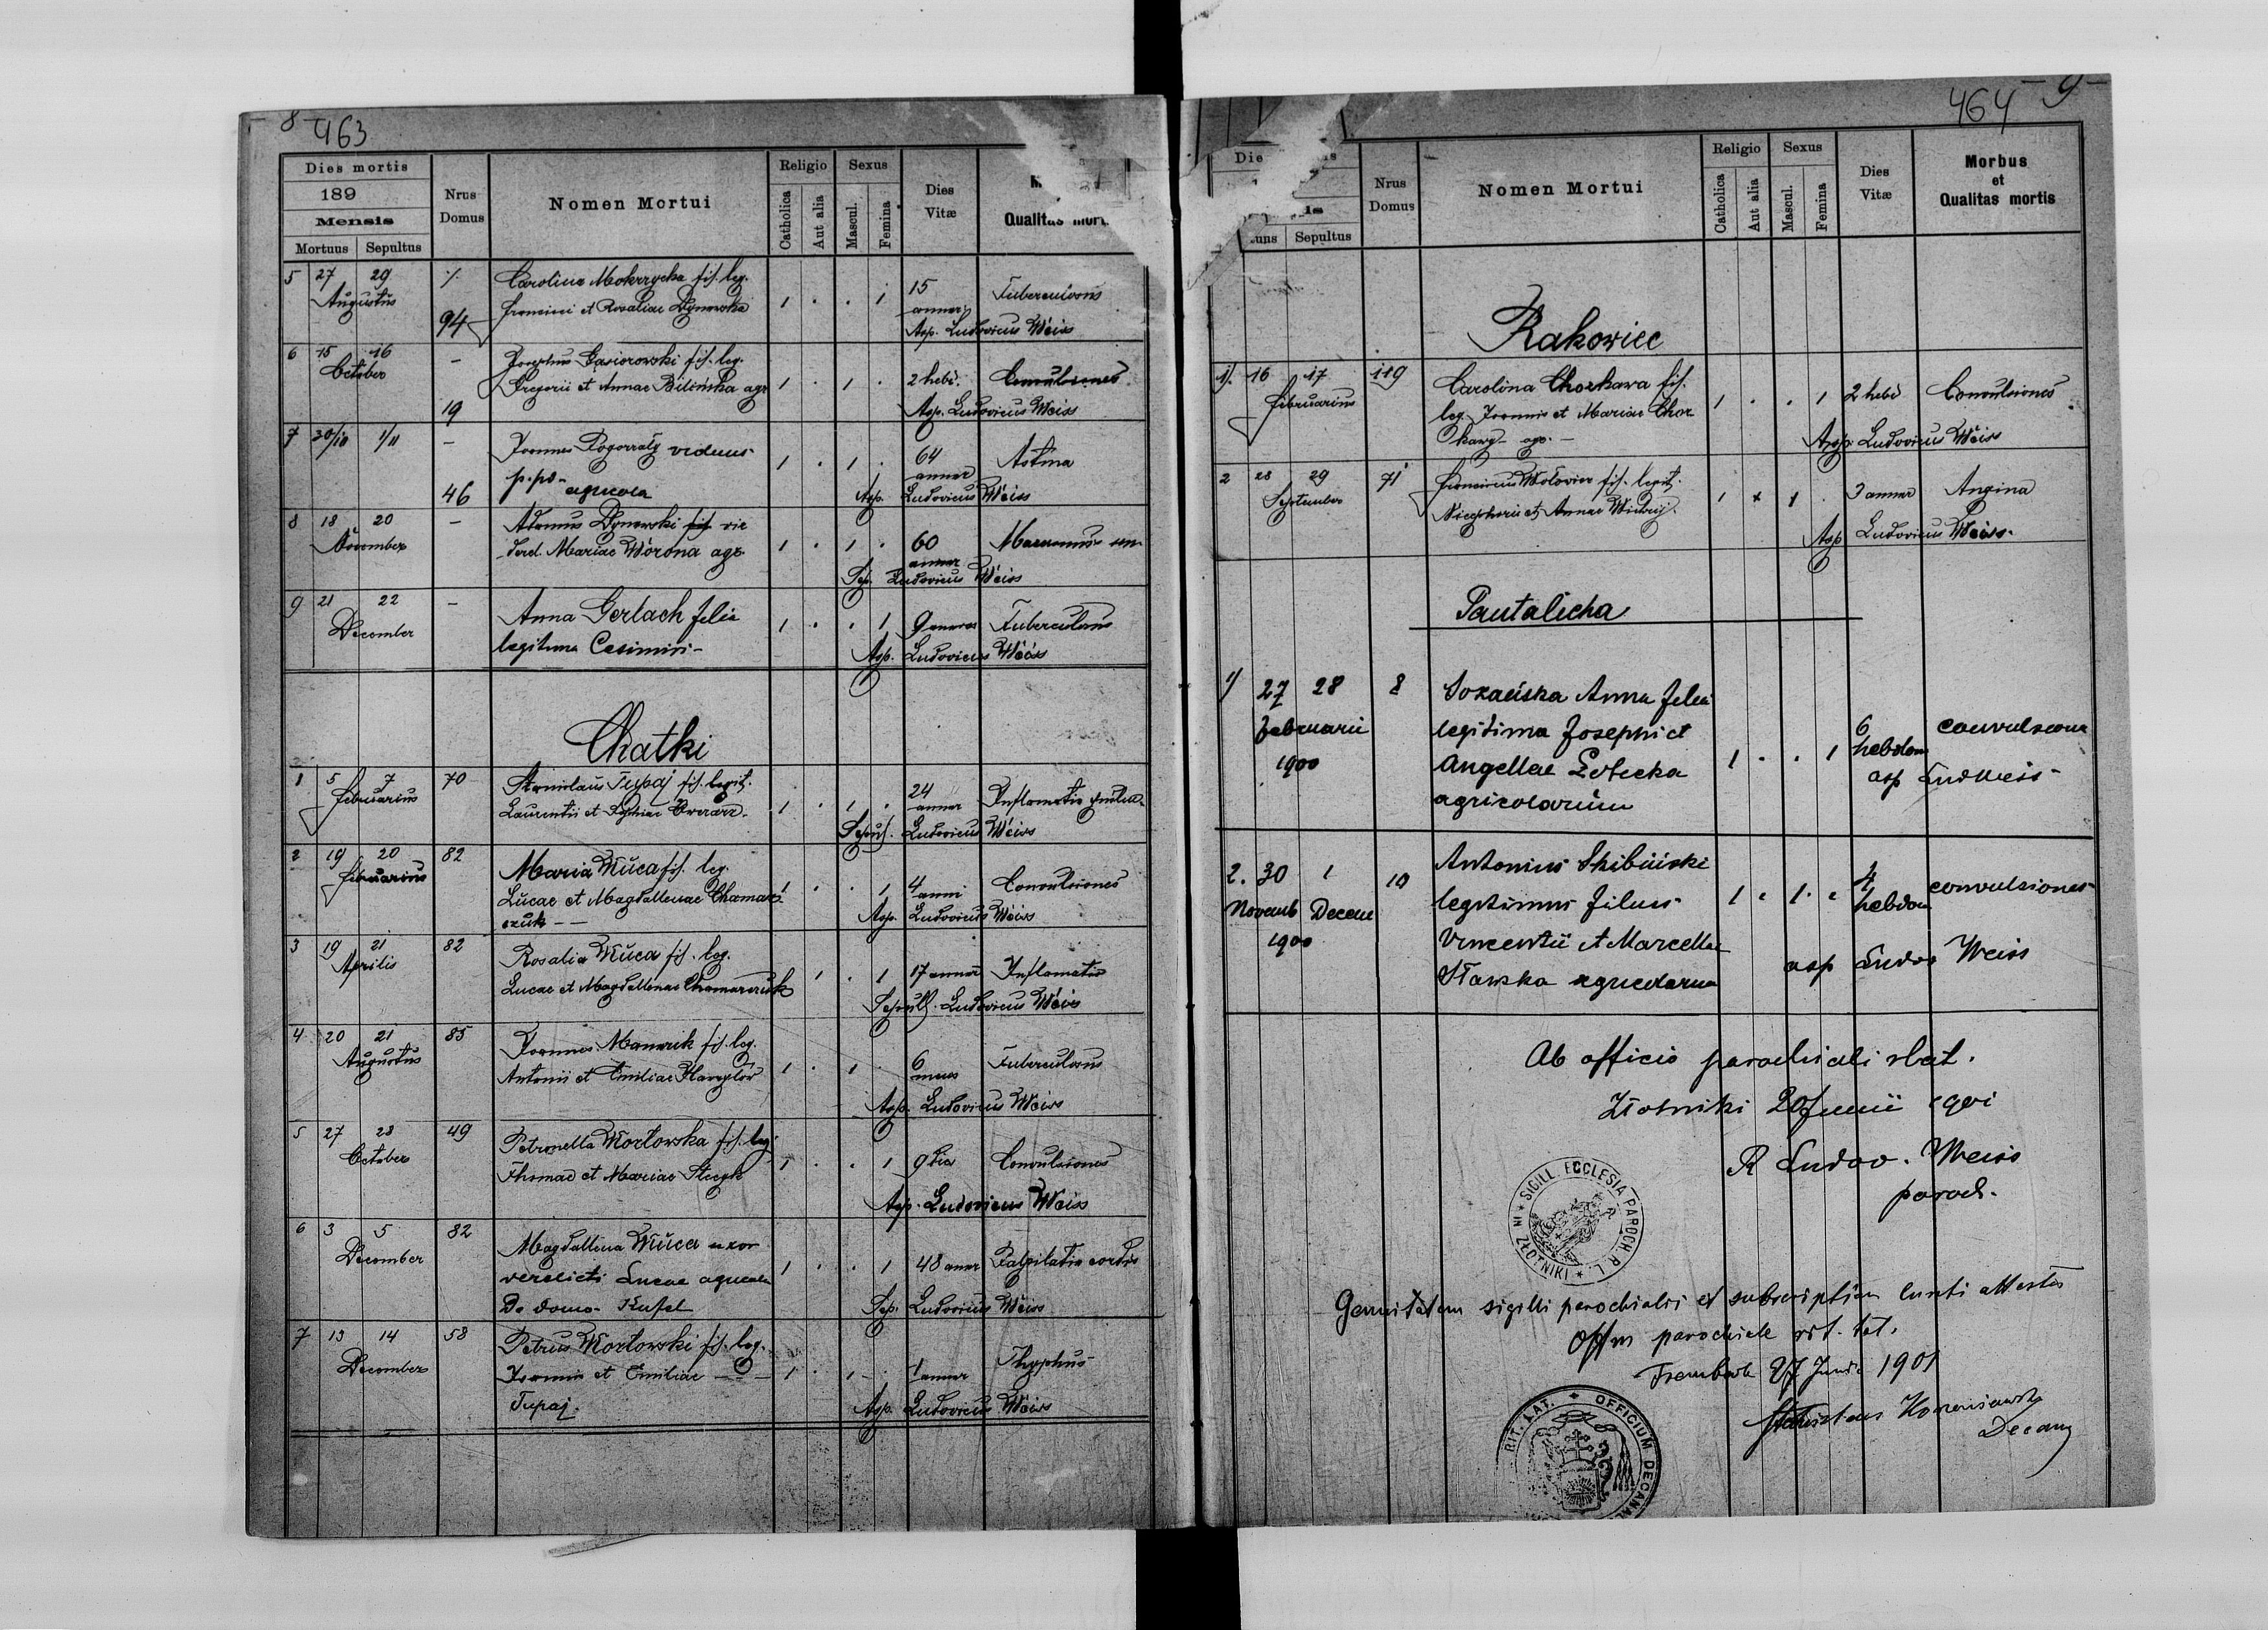 8 463
Dies mortis
189
Mensis
Mortuus Sepultus
Nrus Domus
Nomen Mortui
Religio
Catholica Aut alia
Sexus
Mascul. Femina
Dies Vitæ
Qualitas mort
5 27 29 Augustus 94
Carolina Mokrzycka fil. leg.
Francisci et Rosaliae Dynowska
1 . . 1 15 annor Tuberculosis
Asp. Ludovicus Weiss
6 15 16 October 19
Josephus Gasiorowski fil. leg.
Gregorii et Annae Bilińska agr
1 . 1 . 2 hebd. Convulsiones
Asp. Ludovicus Weiss
7 30/10 1/11 46
Joannes Pogorraly viduus
p. po- agricola
1 . 1 . 64 annor Astma
Asp. Ludovicus Weiss
8 18 20 November
Adamus Dynowski
Mariae Worona agr.
1 . 1 . 60 annor Marasmus sen.
Sep. Ludovicus Weiss
9 21 22 December
Anna Gerlach filia
legitima Casimiri
1 . . 1 9 annor Tuberculosis
Asp. Ludovicus Weiss
Chatki
1 5 7 70 Februarius
Stanislaus Tupaj fil. legit.
Laurentii et
1 . 1 . 24 annor Inflamatio
Sepul. Ludovicus Weiss
2 19 20 82 Februarius
Maria Wuca fil. leg.
Lucae et Magdallenae Chamar
czuk
1 . . 1 4 anni Convulsiones
Asp. Ludovicus Weiss
3 19 21 82 Aprilis
Rosalia Wuca fil. leg.
Lucae et Magdallenae Chamarczuk
1 . 1 17 annor Inflamatio
Sepult. Ludovicus Weiss
4 20 21 85 Augustus
Joannes Mamrik fil. leg.
Antonii et Emiliae
1 . 1 . 6 menses Tuberculosus
Asp. Ludovicus Weiss
5 27 28 49 October
Petronella Wortowska fil. leg.
Thomae et Mariae
1 . . 1 9 die Convulsiones
Asp. Ludovicus Weiss
6 3 5 82 December
Magdallena Wuca uxor
derelicti Lucae agricola
De domo Kufel
1 . . 1 48 annor Palpilatio cordis
Sep. Ludovicus Weiss
7 13 14 58 December
Petrus Wortowski fil. leg.
Joannis et Emiliae
Tupaj.
1 . 1 . 1 annor Thyphus
Asp. Ludovicus Weiss
464 9
Die
Sepultus
Nrus Domus
Nomen Mortui
Religio
Catholica Aut alia
Sexus
Mascul. Femina
Dies Vitæ
Morbus et Qualitas mortis
Rakowiec
1). 16 17 119 Februarius
Carolina Chorkawa fil.
leg. Joannis et Mariae Chor
kawy agr.
1 . . 1 2 hebd Convulsiones
Asp. Ludovicus Weiss
2 28 29 71 September
Franciscus Wolowiec fil. legit.
Nicephorii et Annae
1 1 . 3 annor Angina
Asp Ludovicus Weiss
Pantalicha
1) 27 28 8
Februarii
1900
Anna filia
legitima Josephi et
Angellae
agricolarum
1 . . 1 6 hebdom
asp Lud Weiss
2. 30 1 10
Novemb Decem
1900
Antonius Skibiński
legitimus filius
Vincentii et Marcellae
Stawska
1 . 1 . 4 hebdom convulsiones
asp Ludov Weiss
Ab officio parochiali r. lat.
Złotniki 20 Junii 1901
R Ludov. Weiss
paroch.
SIGILL ECCLESIA PAROCH. R. L. IN ZŁOTNIKI
sigilli parochialis et subscriptionem
parochiale rit. lat.
27 Junii 1901
Stanislaus
Decanus
RIT. LAT. OFFICIUM DECANA